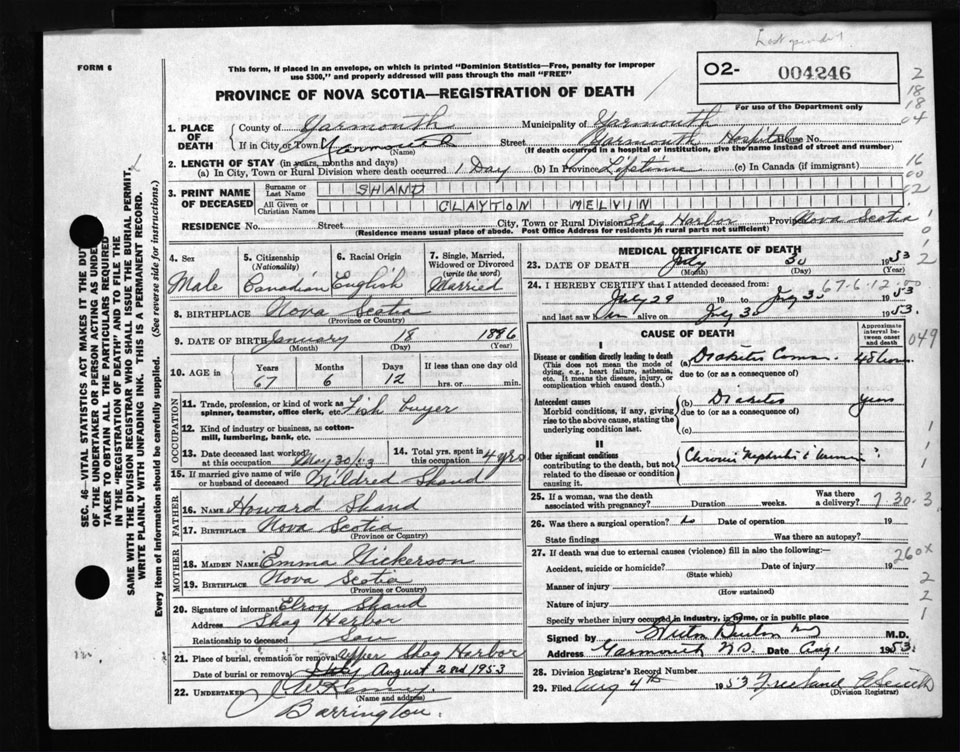 FORM 6
This form, if placed in an envelope, on which is printed "Dominion Statistics—Free, penalty for improper
use $300," and properly addressed will pass through the mail "FREE"
PROVINCE OF NOVA SCOTIA—REGISTRATION OF DEATH
O2- 004246
For use of the Department only
1. PLACE OF DEATH
County of Yarmouth Municipality of Yarmouth
If in City or Town Yarmouth (Name) Street Yarmouth Hospital House No.
(If death occurred in a hospital or institution, give the name instead of street and number)
2. LENGTH OF STAY (in years, months and days)
(a) In City, Town or Rural Division where death occurred 1 Day (b) In Province Lifetime (c) In Canada (if immigrant)
3. PRINT NAME OF DECEASED
Surname or Last Name SHAND
All Given or Christian Names CLAYTON MELVIN
RESIDENCE No. Street City, Town or Rural Division Shag Harbor Province Nova Scotia
(Residence means usual place of abode. Post Office Address for residents in rural parts not sufficient)
4. Sex Male
5. Citizenship (Nationality) Canadian
6. Racial Origin English
7. Single, Married, Widowed or Divorced (write the word) Married
8. BIRTHPLACE Nova Scotia
(Province or Country)
9. DATE OF BIRTH January 18 1896
(Month) (Day) (Year)
10. AGE in Years 67 Months 6 Days 12 If less than one day old hrs. or min.
OCCUPATION
11. Trade, profession or kind of work as spinner, teamster, office clerk, etc. Fish buyer
12. Kind of industry or business, as cotton-mill, lumbering, bank, etc.
13. Date deceased last worked at this occupation May 30/53
14. Total yrs. spent in this occupation 4 yrs
15. If married give name of wife or husband of deceased Mildred Shand
FATHER
16. NAME Howard Shand
17. BIRTHPLACE Nova Scotia
(Province or Country)
MOTHER
18. MAIDEN NAME Emma Nickerson
19. BIRTHPLACE Nova Scotia
(Province or Country)
20. Signature of informant Elroy Shand
Address Shag Harbor
Relationship to deceased Son
21. Place of burial, cremation or removal Upper Shag Harbor
Date of burial or removal August 2nd 1953
22. UNDERTAKER J W Kenney
(Name and address)
Barrington.
MEDICAL CERTIFICATE OF DEATH
23. DATE OF DEATH July 30 1953
(Month) (Day) (Year)
24. I HEREBY CERTIFY that I attended deceased from: 67-6-12
July 29 19 to July 30 1953
and last saw him alive on July 30 1953.
CAUSE OF DEATH
Approximate interval between onset and death
I
Disease or condition directly leading to death
(This does not mean the mode of dying, e.g., heart failure, asthenia, etc. It means the disease, injury, or complication which caused death.)
(a) Diabetes Coma 48 hours
due to (or as a consequence of)
Antecedent causes
Morbid conditions, if any, giving rise to the above cause, stating the underlying condition last.
(b) Diabetes years
due to (or as a consequence of)
(c)
II
Other significant conditions
contributing to the death, but not related to the disease or condition causing it.
Chronic Nephritis
25. If a woman, was the death associated with pregnancy? Duration weeks. Was there a delivery? 7.30.3
26. Was there a surgical operation? no Date of operation 19
State findings Was there an autopsy?
27. If death was due to external causes (violence) fill in also the following:—
Accident, suicide or homicide? Date of injury 19
(State which)
Manner of injury
(How sustained)
Nature of injury
Specify whether injury occurred in industry, in home, or in public place
Signed by M.D.
Address Yarmouth N.S. Date Aug 1 1953.
28. Division Registrar's Record Number
29. Filed Aug 4th 1953 Freeland
(Division Registrar)
SEC. 46—VITAL STATISTICS ACT MAKES IT THE DUTY
OF THE UNDERTAKER OR PERSON ACTING AS UNDER-
TAKER TO OBTAIN ALL THE PARTICULARS REQUIRED
IN THE "REGISTRATION OF DEATH" AND TO FILE THE
SAME WITH THE DIVISION REGISTRAR WHO SHALL ISSUE THE BURIAL PERMIT,
WRITE PLAINLY WITH UNFADING INK. THIS IS A PERMANENT RECORD.
Every item of information should be carefully supplied. (See reverse side for instructions.)
2
18
18
04
16
00
02
049
260X
2
2
1